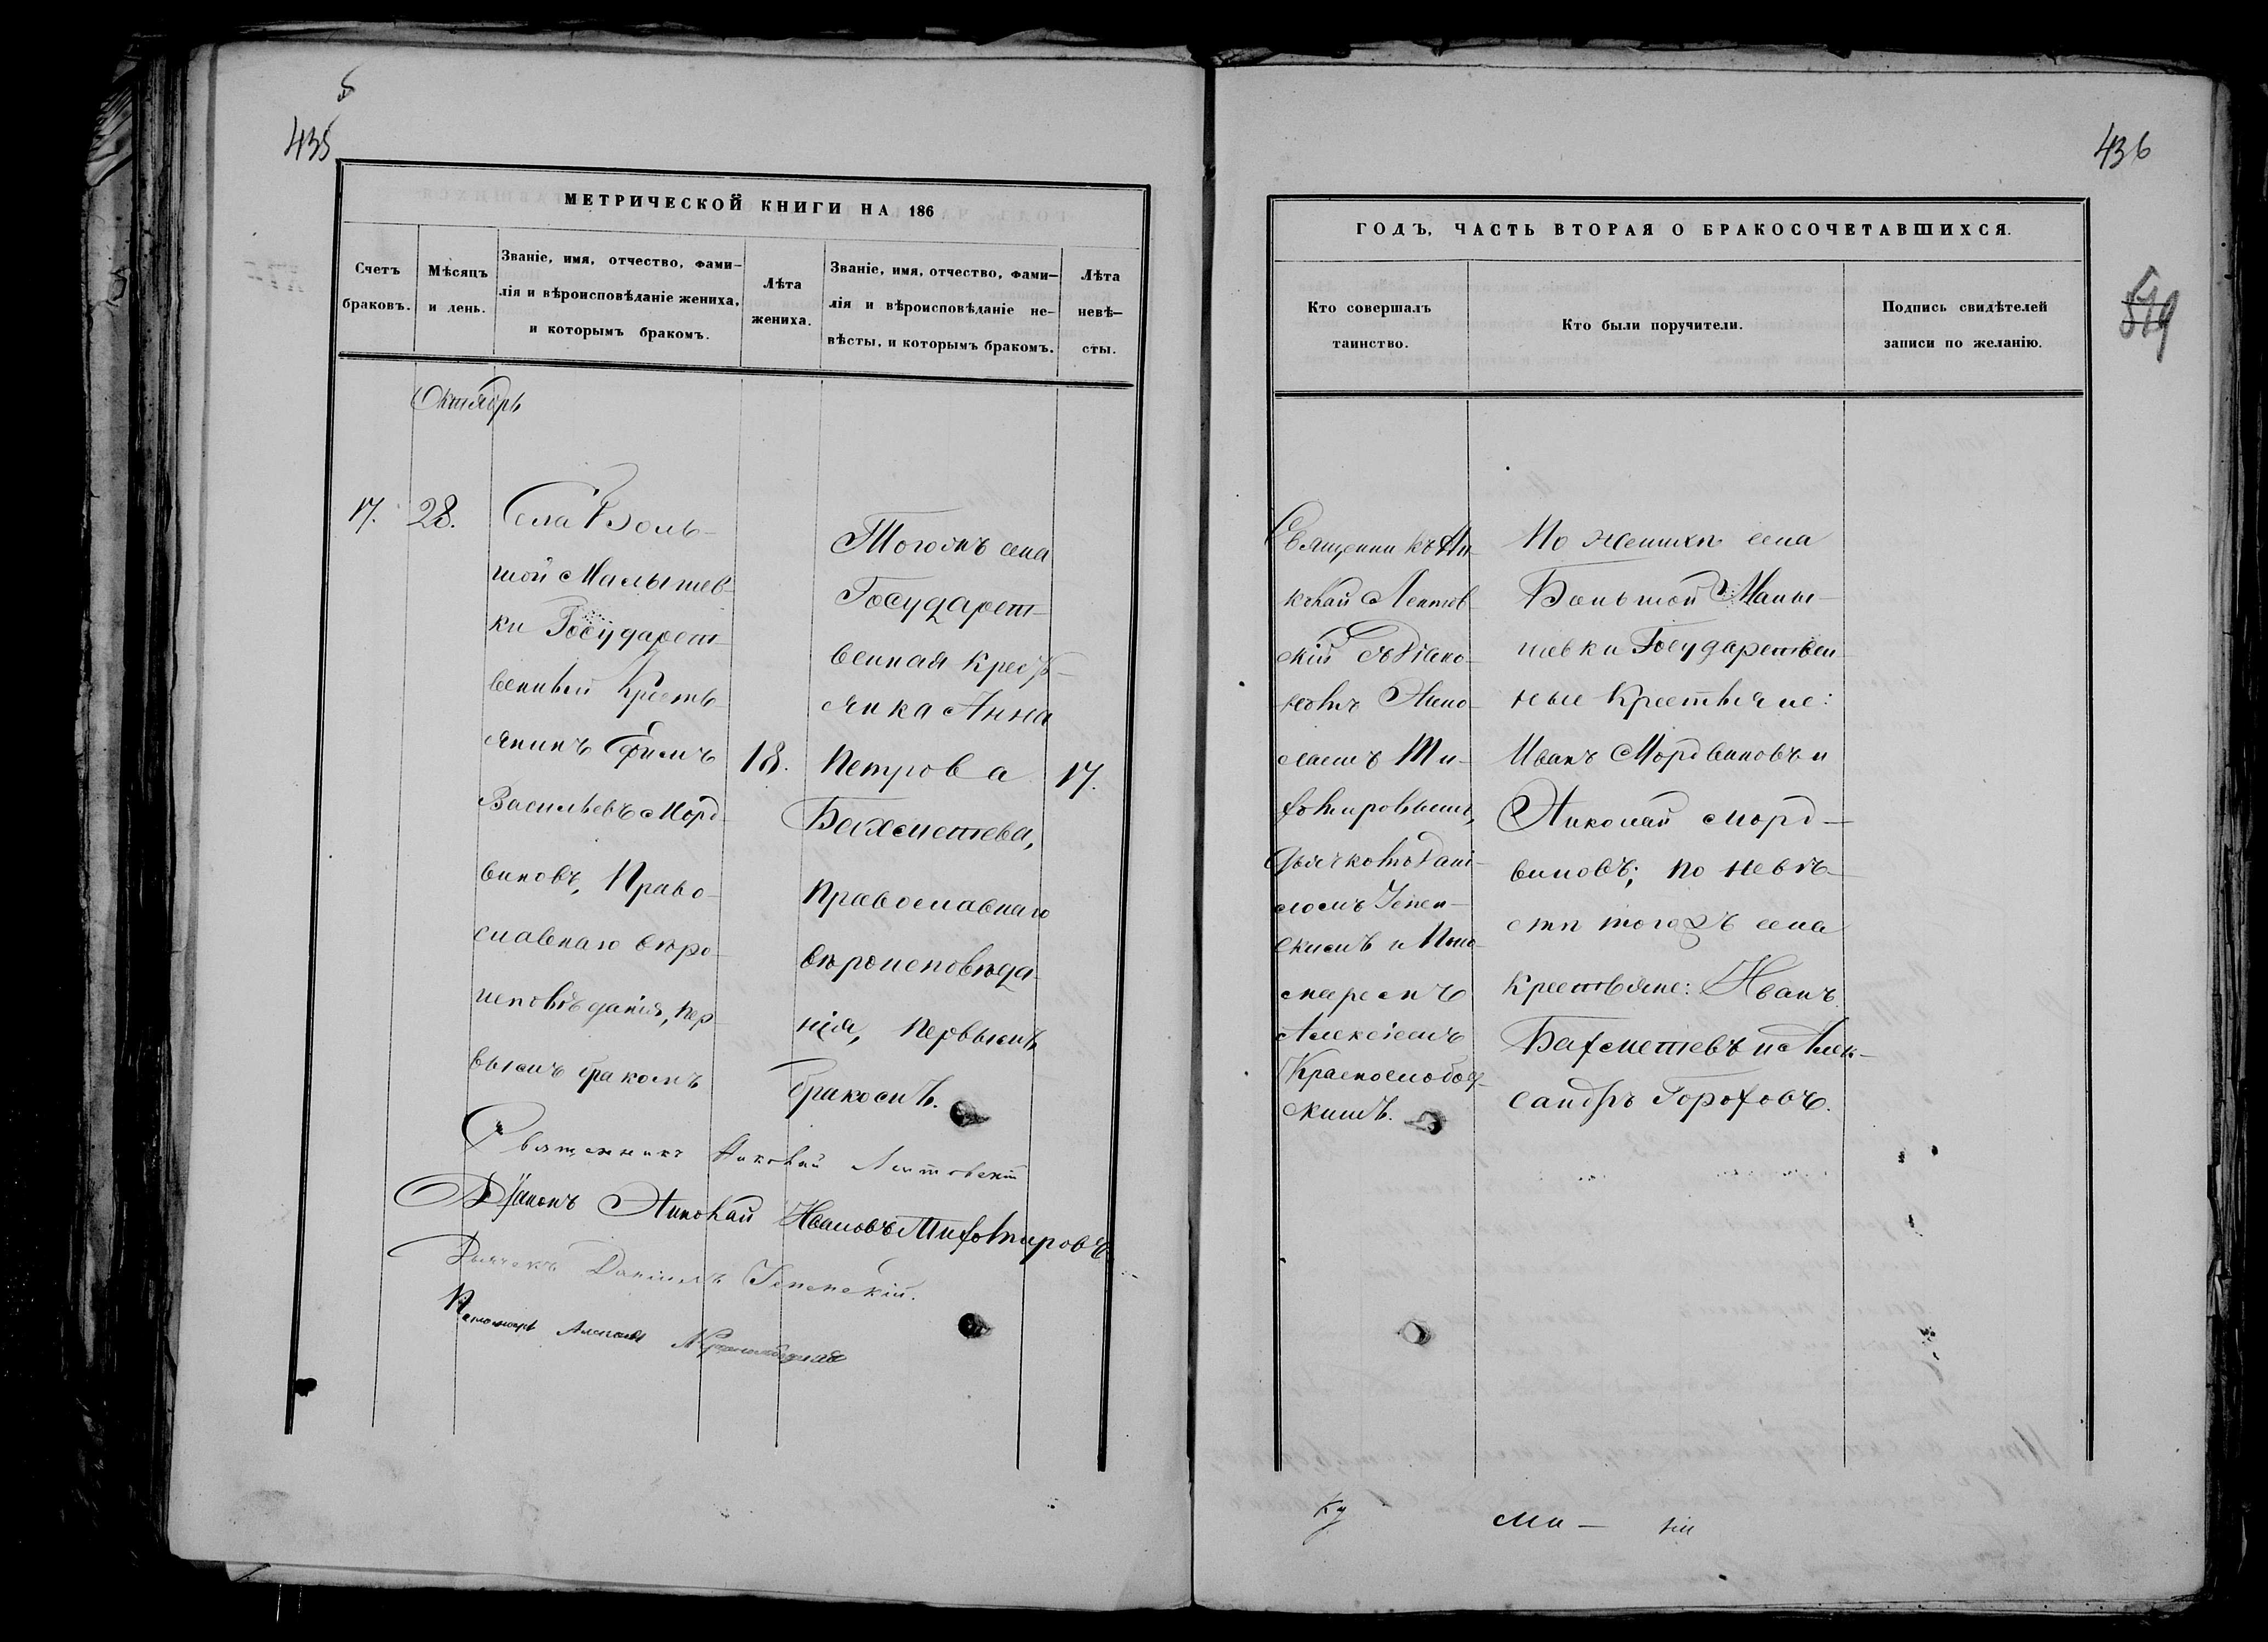 5
435
МЕТРИЧЕСКОЙ КНИГИ НА 186
Счетъ
браковъ.
Мѣсяцъ
и день.
Званіе, имя, отчество, фами-
лія и вѣроисповѣданіе жениха,
и которымъ бракомъ.
Лѣта
жениха.
Званіе, имя, отчество, фами-
лія и вѣроисповѣданіе не-
вѣсты, и которымъ бракомъ.
Лѣта
невѣ-
сты.
Октябрь
17.
28.
Села Боль-
шой Малышев-
ки Государст-
венный Кресть-
янинъ Ефимъ
Васильевъ Морд-
виновъ, Право-
славнаго вѣро-
исповѣданія, пер-
вымъ бракомъ
18.
Тогожъ села
Государст-
венная Крестъ-
янка Анна
Петрова
Бахметева,
Православнаго
вѣроисповѣда-
нія, первымъ
бракомъ.
17.
Священникъ Николай Лентовскій
Діаконъ Николай Ивановъ Тифотировъ
Дьячекъ Даніилъ Успенскій.
Пономарь Алексѣй
436
ГОДЪ, ЧАСТЬ ВТОРАЯ О БРАКОСОЧЕТАВШИХСЯ.
Кто совершалъ
таинство.
Кто были поручители.
Подпись свидѣтелей
записи по желанію.
519
Священникъ Ни-
колай Лентов-
скій съ Діако-
номъ Нико-
лаемъ Ти-
фотировымъ,
Дьячкомъ Дані-
ломъ Успен-
скимъ и Поно-
маремъ
Алексіемъ
Краснослобод-
скимъ.
По женихѣ села
Большой Малы-
шевки Государствен-
ные Крестьяне:
Иванъ Мордвиновъ и
Николай Морд-
виновъ; по невѣ-
стѣ тогожъ села
Крестьяне: Иванъ
Бахметевъ и Алек-
сандръ Гороховъ.
ку
ми-